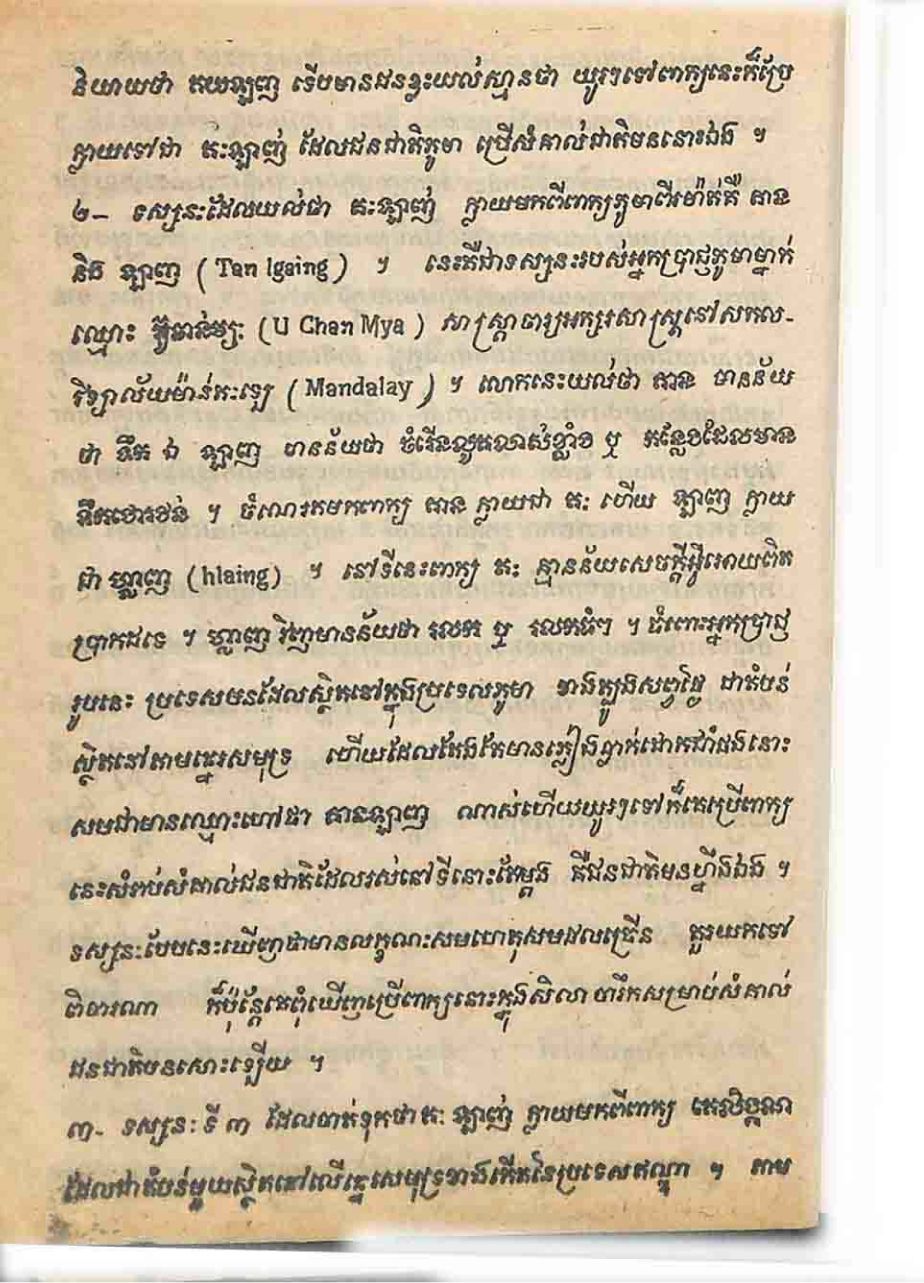 និយាយថា តយឡញ ទើបមានជនខ្លះយល់ស្មានថា យូរៗទៅពាក្យនេះក៏ប្រែ
ក្លាយទៅជា តៈឡាញ់ ដែលជនជាតិភូមា ប្រើសំគាល់ជាតិមននោះឯង ។
២- ទស្សនៈដែលយល់ថា តៈឡាញ់ ក្លាយមកពីពាក្យភូមាពីរម៉ាត់គឺ តាន
និង ឡាញ ( Tan lgaing ) ។ នេះគឺជាទស្សនៈរបស់អ្នកប្រាជ្ញភូមាម្នាក់
ឈ្មោះ អ៊ូចាន់ម្យៈ (U Chan Mya ) សាស្ត្រាចារ្យអក្សរសាស្ត្រនៅសកល-
វិទ្យាល័យម៉ាន់តៈឡេ ( Mandalay ) ។ លោកនេះយល់ថា តាន មានន័យ
ថា ទឹក ឯ ឡាញ មានន័យថា ចំរើនលូតលាស់ខ្លាំង ឬ កន្លែងដែលមាន
ទឹកថោរថន់ ។ ចំណេរតមកពាក្យ តាន ក្លាយជា តៈ ហើយ ឡាញ ក្លាយ
ជា ហ្លាញ (hlaing) ។ នៅទីនេះពាក្យ តៈ គ្មានន័យសេចក្តីអ្វីអោយពិត
ប្រាកដទេ ។ ហ្លាញ វិញមានន័យថា រលក ឬ រលកធំៗ ។ ចំពោះអ្នកប្រាជ្ញ
រូបនេះ ប្រទេសមនដែលស្ថិតនៅក្នុងប្រទេសភូមា ខាងត្បូងសព្វថ្ងៃ ជាតំបន់
ស្ថិតនៅតាមឆ្នេរសមុទ្រ ហើយដែលតែងតែមានភ្លៀងធ្លាក់ជោកជាំផងនោះ
សមជាមានឈ្មោះហៅថា តានឡាញ ណាស់ហើយយូរៗទៅក៏គេប្រើពាក្យ
នេះសំរាប់សំគាល់ជនជាតិដែលរស់នៅទីនោះតែម្តង គឺជនជាតិមនហ្នឹងឯង ។
ទស្សនៈបែបនេះឃើញថាមានលក្ខណៈសមហេតុសមផលច្រើន គួរយកទៅ
ពិចារណា ក៏ប៉ុន្តែគេពុំឃើញប្រើពាក្យនោះក្នុងសិលា ចារឹកសម្រាប់សំគាល់
ជនជាតិមនសោះឡើយ ។
៣- ទស្សនៈ ទី ៣ ដែលចាត់ទុកថា តៈ ឡាញ់ ក្លាយមកពីពាក្យ តេលិង្គណ
ដែលជាតំបន់មួយស្ថិតនៅលើឆ្នេរសមុទ្រខាងកើតនៃប្រទេសឥណ្ឌា ។ តាម